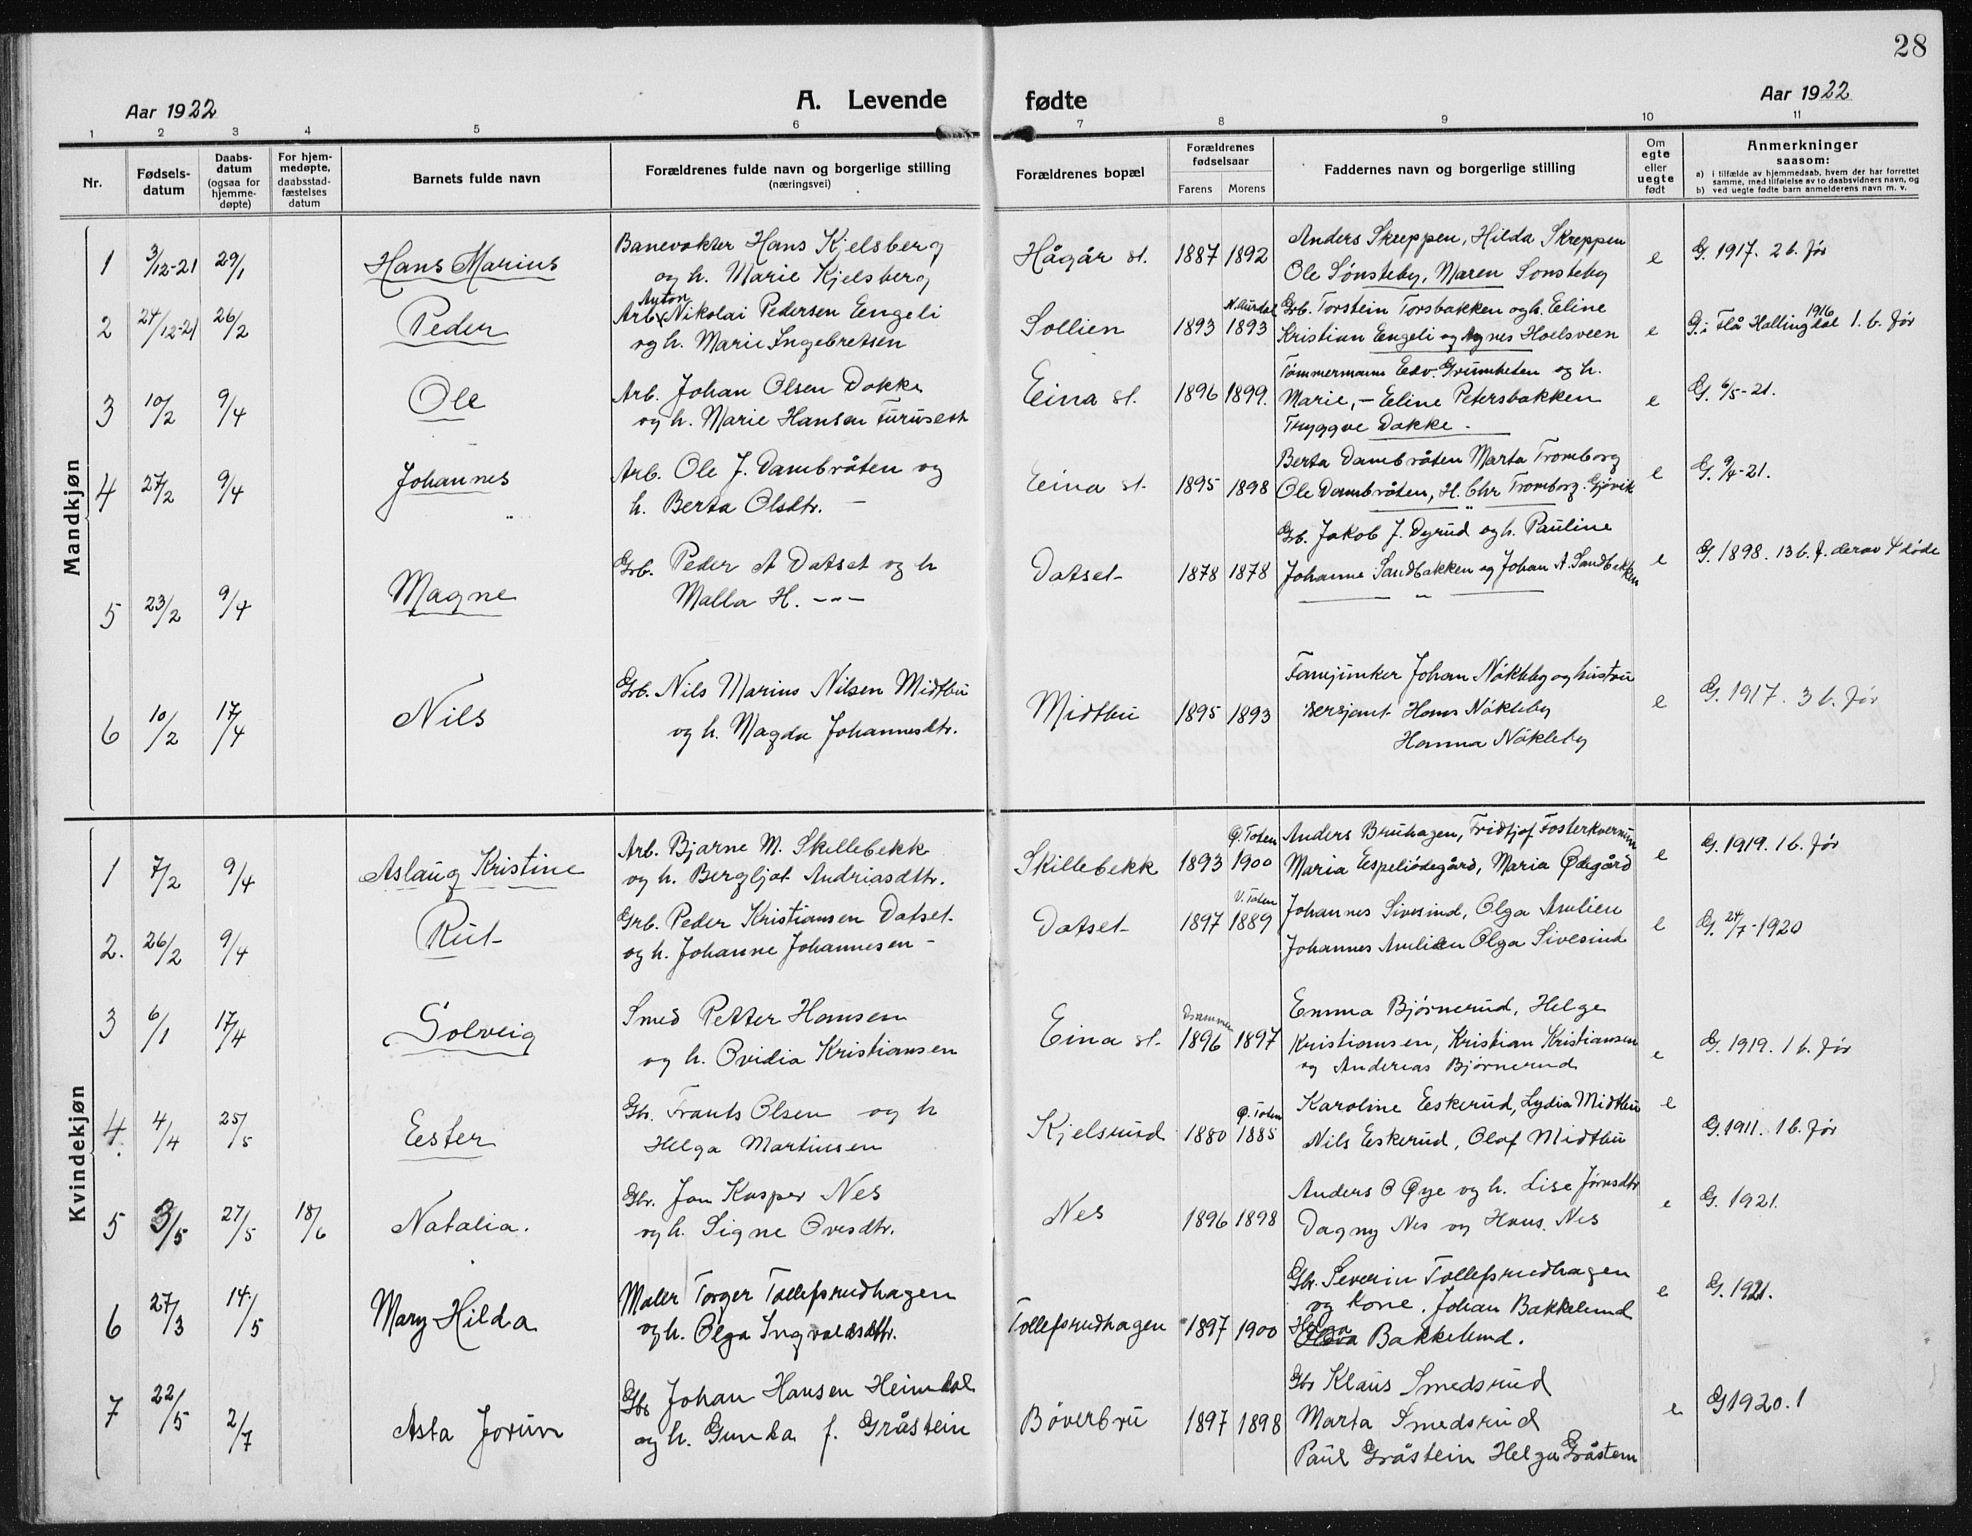 28
Aar 1922
A. Levende fødte
Aar 1922
1 2 3 4 5 6 7 8 9 10 11
Nr.
Fødsels-
datum
Daabs-
datum
(ogsaa for
hjemme-
døpte)
For hjem-
medøpte,
daabsstad-
fæstelses
datum
Barnets fulde navn
Forældrenes fulde navn og borgerlige stilling
(næringsvei)
Forældrenes bopæl
Forældrenes
fødselsaar
Farens Morens
Faddernes navn og borgerlige stilling
Om
egte
eller
uegte
født
Anmerkninger
saasom:
a) i tilfælde av hjemmedaab, hvem der har forrettet
samme, med tilføielse av to daabsvidners navn, og
b) ved uegte fødte barn anmelderens navn m. v.
Mandkjøn
1 3/12-21 29/1 Hans Marius
Banevokter Hans Kjelsberg
og h. Marie Kjelsberg
Hågår st. 1887 1892
Anders Skreppen, Hilda Skreppen
Ole Sønsteby, Maren Sønsteby
e G. 1917. 2 b. før
2 24/12-21 26/2 Peder
Anton
Arb. Nikolai Pedersen Eengeli
og h. Marie Ingebretsen
Sollien 1893 N. Aurdal 1893
Grb. Torstein Torsbakken og h. Eline
Kristian Engeli og Agnes Hoelsveen
e G. i Flå Hallingdal 1916 1. b. før
3 10/2 9/4 Ole
Arb. Johan Olsen Dokke
og h. Marie Hansen Furuseth
Eina st. 1896 1899.
Tømmermann Edv. Grimheden og h.
Marie, - Eline Petersbakken
Tryggve Dokke -
e G. 6/5-21.
4 27/2 9/4 Johannes
Arb. Ole J. Dambråten og
h. Berta Olsdtr. -
Eina st. 1895 1898
Berta Dambråten Marta Tromborg
Ole Dambråten, H. Chr Tromborg. Gjøvik
e G. 9/4-21.
5 23/2 9/4 Magne
Grb. Peder A Datset og h
Malla H. -"-
Datset 1878 1878
Grb. Jakob J. Dyrud og h. Pauline
Johanne Sandbakken og Johan A. Sandbakken
e G. 1898. 13 b. f. derav 4 døde
6 10/2 17/4 Nils
Grb. Nils Marius Nilsen Midtbu
og h. Magda Johannesdtr.
Midtbu 1895 1893
Fanejunker Johan Nøkleby og hustru
Sersjant Hans Nøkleby
Hanna Nøkleby
e G. 1917. 3 b. før
Kvindekjøn
1 7/2 9/4 Aslaug Kristine
Arb. Bjarne M. Skillebekk
og h. Bergljot Andriasdtr.
Skillebekk 1893 Ø. Toten 1900
Anders Bruhagen, Fridtjof Fosterkvernum
Maria Espeliødegård, Maria Ødegård
e G. 1919. 1 b. før
2. 26/2 9/4 Rut
Grb. Peder Kristiansen Datset
og h. Johanne Johannesen -
Datset 1897 V. Toten 1889
Johannes Sivesind, Olga Amlien
Johannes Amlien Olga Sivesind
e G. 24/7-1920
3 6/1 17/4 Solveig
Smed Petter Hansen
og h. Ovidia Kristiansen
Eina st. Drammen 1896 1897
Emma Bjørnerud, Helge
Kristiansen, Kristian Kristiansen
og Anderias Bjørnerud
e G. 1919. 1 b. før
4. 4/4 25/5 Ester
Gbr. Frants Olsen og h
Helga Martinsen
Kjelsrud 1880 Ø. Toten 1885
Karoline Eskerud, Lydia Midtbu
Nils Eskerud, Olaf Midtbu
e G. 1911. 1 b. før
5 3/5 27/5 18/6 Natalia.
Gbr. Jon Kasper Nes
og h. Signe Ovesdtr.
Nes 1896 1898
Anders O Øye og h. Lise Jørnsdtr
Dagny Nes og Hans. Nes
e G. 1921.
6 27/3 14/5 Mary Hilda
Maler Torger Tollefsrudhagen
og h. Olga Ingvaldsdtr.
Tollefsrudhagen 1897 1900
Gbr. Severin Tollefsrudhagen
og kone. Johan Bakkelund
Helga Bakkelund.
e G. 1921.
7 22/5 2/7 Asta Jorun
Gbr Johan Hansen Heimdal
og h. Gunda f. Gråstein
Bøverbru 1897 1898
Gbr Klaus Smedsrud
Marta Smedsrud
Paul Gråstein Helga Gråstein
e G 1920. 1